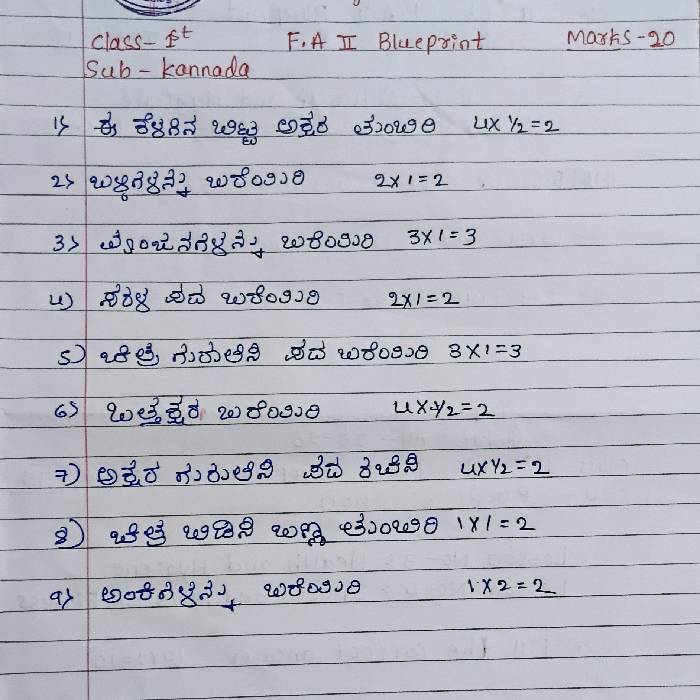 Class- 1st F.A II Blueprint Marks-20
Sub - kannada
1) ಈ ಕೆಳಗಿನ ಬಿಟ್ಟ ಅಕ್ಷರ ತುಂಬಿರಿ 4x ½=2
2) ಬಳ್ಳಿಗಳನ್ನು ಬರೆಯಿರಿ 2x1=2
3) ವ್ಯಂಜನಗಳನ್ನು ಬರೆಯಿರಿ 3x1=3
4) ಸರಳ ಪದ ಬರೆಯಿರಿ 2x1=2
5) ಚಿತ್ರ ಗುರುತಿಸಿ ಪದ ಬರೆಯಿರಿ 3x1=3
6) ಒತ್ತಕ್ಷರ ಬರೆಯಿರಿ 4x½=2
7) ಅಕ್ಷರ ಗುರುತಿಸಿ ಪದ ರಚಿಸಿ 4x½=2
8) ಚಿತ್ರ ಬಿಡಿಸಿ ಬಣ್ಣ ತುಂಬಿರಿ 1x1=2
9) ಅಂಕಿಗಳನ್ನು ಬರೆಯಿರಿ 1x2=2